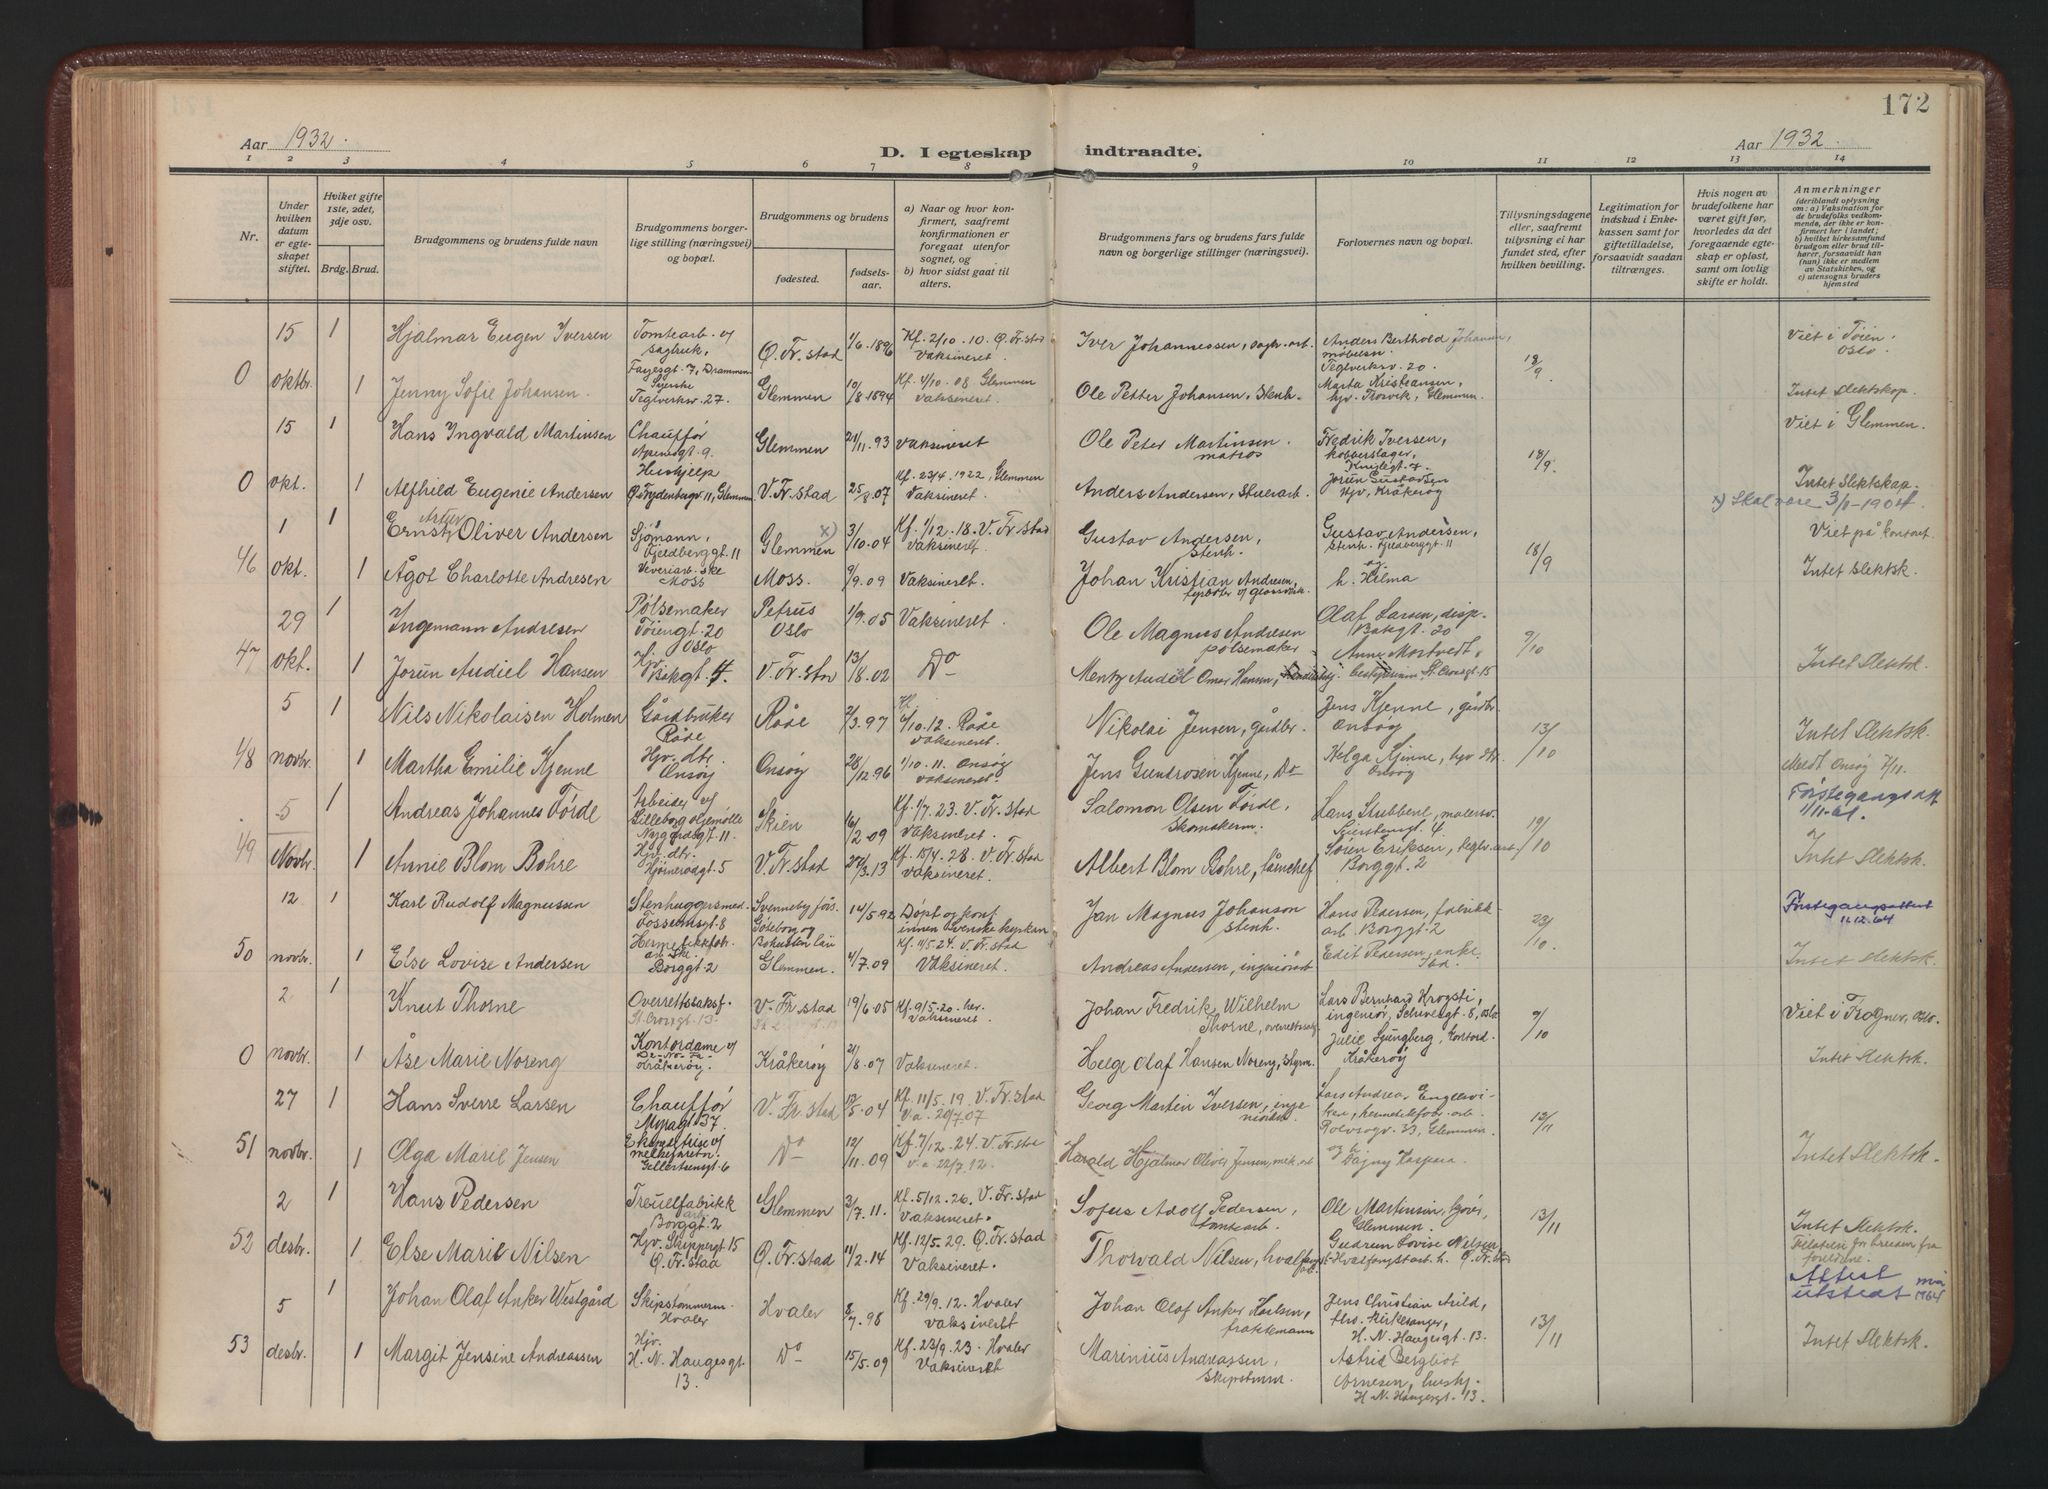 172
Aar 1932.
D. I egteskap indtraadte.
Aar 1932.
1 2 3 4 5 6 7 8 9 10 11 12 13 14
Nr.
Under hvilken datum er egteskapet stiftet.
Hviket gifte 1ste, 2det, 3dje osv.
Brdg. Brud.
Brudgommens og brudens fulde navn
Brudgommens borgerlige stilling (næringsvei) og bopæl.
Brudgommens og brudens
fødested.
fødselsaar.
a) Naar og hvor konfirmert, saafremt konfirmationen er foregaat utenfor sognet, og
b) hvor sidst gaat til alters.
Brudgommens fars og brudens fars fulde navn og borgerlige stillinger (næringsvei).
Forlovernes navn og bopæl.
Tillysningsdagene eller, saafremt tilysning ei har fundet sted, efter hvilken bevilling.
Legitimation for indskud i Enkekassen samt for giftetilladelse, forsaavidt saadan tiltrænges.
Hvis nogen av brudefolkene har været gift før, hvorledes da det foregaaende egteskap er opløst, samt om lovlig skifte er holdt.
Anmerkninger (deriblandt oplysning om: a) Vaksination for de brudefolks vedkommende, der ikke er konfirmert her i landet; b) hvilket kirkesamfund brudgom eller brud tilhører, forsaavidt han (hun) ikke er medlem av Statskirken, og c) utensogns bruders hjemsted
0 15 oktbr. 1 Hjalmar Eugen Iversen Tomtearb. v/ sagbruk, Fayesgt. 7, Drammen Ø. Fr.stad 1/6.1896 Kf. 2/10.10. Ø. Fr.stad Vaksineret Iver Johannessen, sagbr.arb. Anders Berthold Johansen, Teglverksv. 20. 18/9. Viet i Tøien Oslo.
1 Jenny Sofie Johansen. Syerske Teglverksv. 27. Glemmen 10/8.1894 Kf. 4/10.08 Glemmen Vaksineret. Ole Petter Johansen, Stenh. Marta Kristiansen, hjv. Trosvik, Glemmen. Intet Slektskap.
0 15 okt. 1 Hans Ingvald Martinsen Chauffør Glemmen 21/11.93 Vaksineret Ole Peter Martinsen. matros Fredrik Iversen, kobberslager, 18/9. Viet i Glemmen.
1 Alfhild Eugenie Andersen Hushjelp Ø. Frydenbergv. 11, Glemmen V. Fr.stad 25/8.07 Kf. 23/4.1922, Glemmen Vaksineret. Anders Andersen, Stuerarb. Jorun Gustavsen Hjv, Kråkerøy Intet Slektskap.
x) Skal være 3/11-1904
46 1 okt. 1 Ernst Artur Oliver Andersen Sjømann, Fjeldberggt. 11 Glemmen x) 3/10.04 Kf. 1/12.18. V. Fr.stad Vaksineret. Gustav Andersen, Stenh. Gustav Andersen, Stenh. Fjeldberggt. 11 18/9 Viet på kontoret.
1 Ågot Charlotte Andresen Veveriarb.ske Moss Moss. 9/9.09 Vaksineret. Johan Kristian Andresen, og h. Hilma Intet Slektsk.
47 29 okt. 1 Ingemann Andresen Pølsemaker Tøiengt. 20 Oslo Petrus Oslo 1/9.05 Vaksineret. Ole Magnus Andresen pølsemaker Olaf Larsen, disp. Bakgt. 20 9/10
1 Jorun Audiel Hansen Hj. Bakgt. 4. V. Fr.stad 13/8.02 Do Mentz Audiel Omar Hansen, Anne Mortvedt, bestyrerinne, St. Crossgt. 15 Intet Slektsk.
48 5 novbr. 1 Nils Nikolaisen Holmen Gårdbruker Råde Råde 2/3.97 Kf. 1/10.12. Råde Vaksineret. Nikolai Jensen, gårdbr. Jens Kjenne, gårdbr. Onsøy 13/10 Intet Slektsk.
1 Martha Emilie Kjenne Hjv. dtr. Onsøy Onsøy 28/12.96 1/10.11. Onsøy Vaksineret. Jens Gundrosen Kjenne, Do Helga Kjenne, hjv. dtr. Onsøy Medt. Onsøy 7/11.
49 5 Novbr. 1 Andreas Johannes Förde Arbeider v/ Lilleborg Oljemølle Nygårdsgt. 11. Skien 16/2.09 Kf. 1/7.23. V. Fr.stad Vaksineret. Salomon Olsen Förde, Skomakerm. Hans Stubberl, malersv. 4. 19/10 Førstegangsatt. 1/11-61.
1 Annie Blom Bohre Hjv. dtr. Hjørneroagt. 5 V. Fr.stad 27/3.13 Kf. 15/4.28. V. Fr.stad Vaksineret. Albert Blom Bohre, lånechef Søren Eriksen, teglv.arb. Borggt. 2 Intet Slektsk.
50 12 novbr. 1 Karl Rudolf Magnussen Stenhuggersmed. Fossumsgt. 8 Svenneby förs. Göteborg og Bohuslän län 14/5.92 Døpt og konf. innen Svenske kyrkan Jan Magnus Johanson stenh. Hans Pedersen, fabrikkarb. Borggt. 2 23/10. Førstegangsattest 11.12.64
1 Else Lovise Andersen Hermetikkfabr.arb.ske. Borggt. 2 Glemmen. 4/7.09 Kf. 11/5.24. V. Fr.stad Vaksineret. Andreas Andersen, ingeniørarb. Edit Pedersen, enke Ibd. Intet Slektsk.
0 2 novbr. 1 Knut Thorne Overrettssakf. St. Crossgt. 13. V. Fr.stad 19/6.05 Kf. 9/5.20. her. Vaksineret. Johan Fredrik Wilhelm Thorne, overrettssakf. Lars Bernhard Krogsti, ingeniør, Schivesgt. 8, Oslo 9/10 Viet i Frogner, Oslo.
1 Åse Marie Noreng Kontordame v/ De-No-Fa. Kråkerøy. Kråkerøy 21/8.07 Vaksineret. Helge Olaf Hansen Noreng, Styrm. Julie Ljungberg, Kontord. Kråkerøy Intet Slektsk.
51 27 novbr. 1 Hans Sverre Larsen Chauffør Myragt. 37. V. Fr.stad 12/5.04 Kf. 11/5.19. V. Fr.stad Va. 20/7.07 Georg Martin Iversen, Lars Andreas Engelsviken, hermetikfabr.arb. Rolvsøgv. 33, Glemmen. 12/11
1 Olga Marie Jensen Ekspeditrise v/ melkeforetn. Gillertsensgt. 6 Do 12/11.09 Kf. 7/12.24. V. Fr.stad Va 22/7.12. Harald Hjalmar Oliver Jensen, mek.arb. og Dagny Kaspara. Intet Slektsk.
52 2 desbr. 1 Hans Pedersen Treullfabrikkarb. Borggt. 2 Glemmen 3/7.11. Kf. 5/12.26. V. Fr.stad Vaksineret. Sofus Adolf Pedersen, tomtearb. Ole Martinsen, kjører, Glemmen. 13/11 Intet Slektsk.
1 Else Marie Nilsen Hjv. Skippergt. 15 Ø. Fr.stad Ø. Fr.stad 11/2.14 Kf. 12/5.29. Ø. Fr.stad Vaksineret. Thorvald Nilsen, hvalfangstarb. Gudrun Lovise Nilsen Hvalfangstarb. h. Ø. Fr.stad Tilatelse for bruden fra foreldrene.
53 5 desbr. 1 Johan Olaf Anker Westgård Skipstømmerm. Hvaler Hvaler 8/7.98 Kf. 29/9.12. Hvaler Vaksineret Johan Olaf Anker Karlsen, fraktemann Jens Christian Arild, kirkesanger, H. N. Haugesgt. 13. 13/11 Attest utstedt mai 1964
1 Margit Jensine Andreassen Hjv. H. N. Haugesgt. 13. Do 15/5.09 Kf. 23/9.23. Hvaler Vaksineret Marinius Andreassen, Skipstmm. Astrid Bergliot Arnesen, hushj. H. N. Haugesgt. 13. Intet Slektsk.